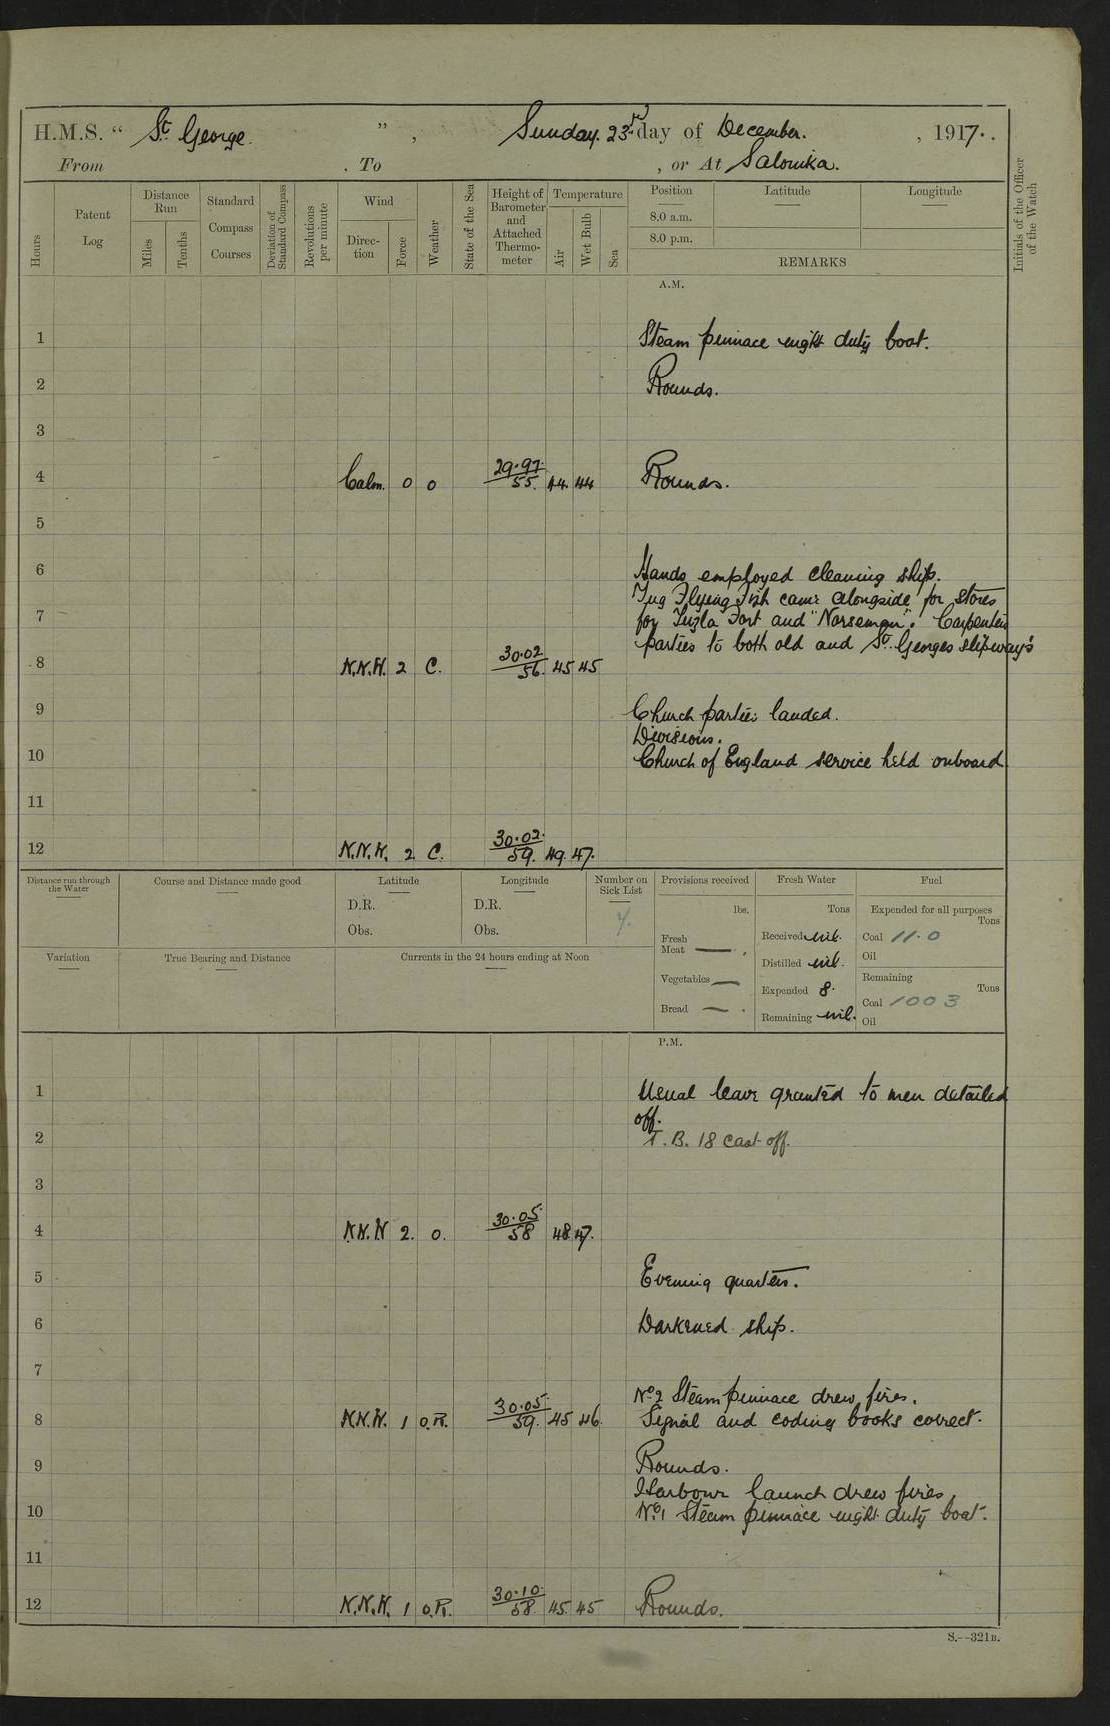 H.M.S. " St George. ", Sunday. 23rd day of December. , 1917.
From . To , or At Salonika.
Hours
Patent Log
Distance Run
Miles
Tenths
Standard Compass Courses
Deviation of Standard Compass
Revolutions per minute
Wind
Direction
Force
Weather
State of the Sea
Height of Barometer and Attached Thermometer
Temperature
Air
Wet Bulb
Sea
Position Latitude Longitude
8.0 a.m.
8.0 p.m.
REMARKS
Initials of the Officer of the Watch
A.M.
1 Steam pinnace night duty boat.
2 Rounds.
3
4 Calm. 0 o 29.97. 55. 44. 44 Rounds.
5
6 Hands employed cleaning ship.
Tug Flying Fish came alongside for stores
7 for Tuzla Fort and "Norseman". Carpenters
parties to both old and St. Georges slipway's
8 N.N.W. 2 C. 30.02 56. 45 45
9 Church parties landed.
Divisions.
10 Church of England service held onboard
11
12 N.N.W. 2 C. 30.02. 59. 49. 47.
Distance run through the Water
Course and Distance made good
Latitude
D.R.
Obs.
Longitude
D.R.
Obs.
Number on Sick List
Provisions received
lbs.
Fresh Meat — .
Vegetables —
Bread — .
Fresh Water
Tons
Received nil.
Distilled nil.
Expended 8.
Remaining nil.
Fuel
Expended for all purposes
Tons
Coal 11.0
Oil
Remaining
Tons
Coal 1003
Oil
Variation
True Bearing and Distance
Currents in the 24 hours ending at Noon
P.M.
1 Usual leave granted to men detailed
off.
2 T.B. 18 cast off.
3
4 N.N.W 2. o. 30.05. 58 48 47.
5 Evening quarters.
6 Darkened ship.
7
No 2 Steam pinnace drew fires.
8 N.N.W. 1 o.R. 30.05. 59. 45 46. Signal and coding books correct.
9 Rounds.
Harbour launch drew fires
10 No. 1 Steam pinnace night duty boat.
11
12 N.N.W. 1 o.R. 30.10. 58. 45. 45 Rounds.
S.--321B.